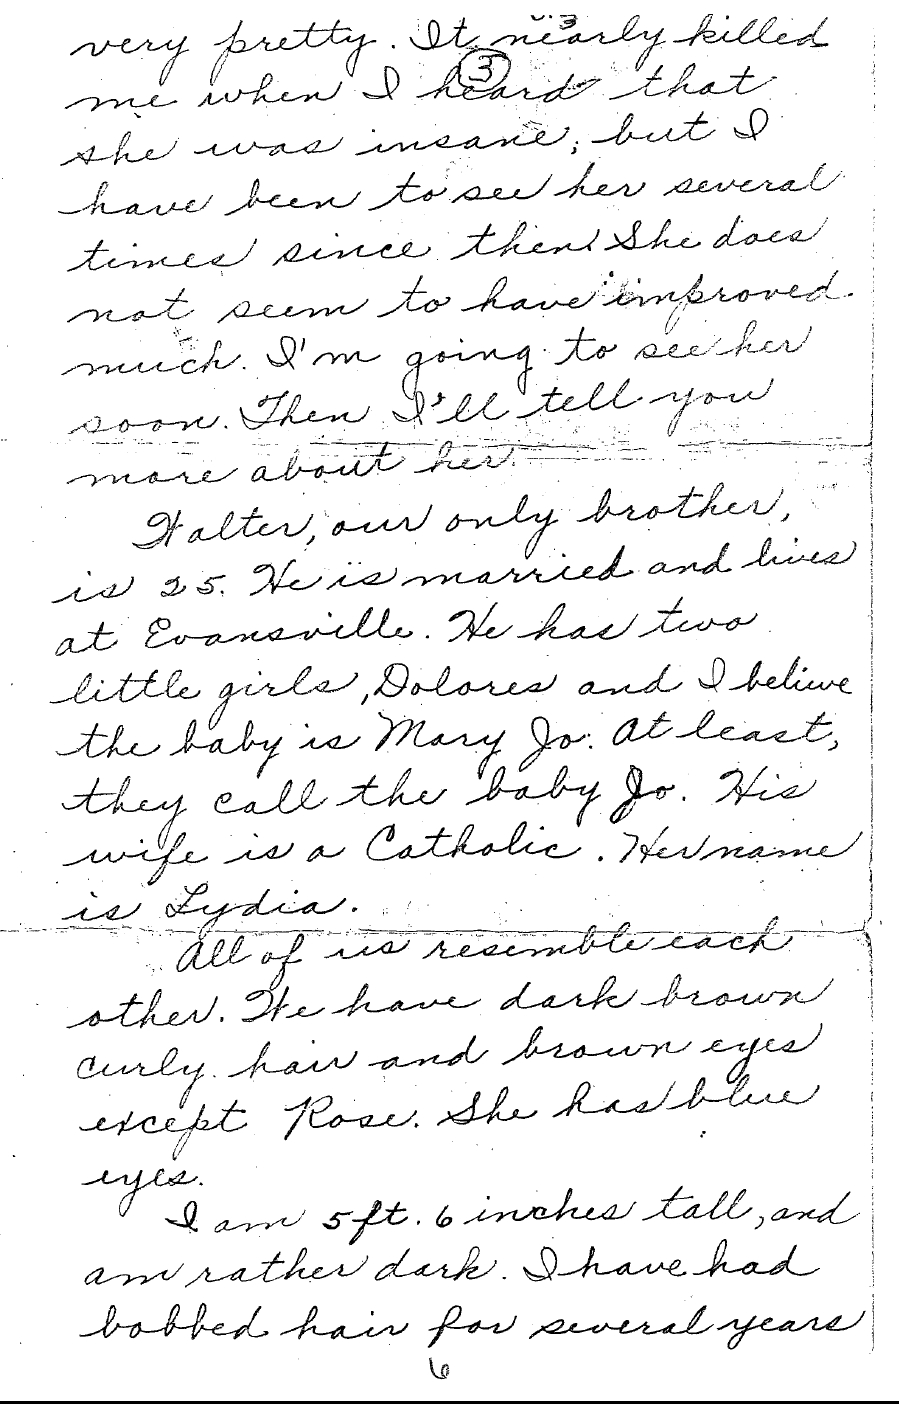 very pretty. It nearly killed
3
me when I heard that
she was insane, but I
have been to see her several
times since then. She does
not seem to have improved
much. I'm going to see her
soon. Then I'll tell you
more about her.
Walter, our only brother,
is 25. He is married and lives
at Evansville. He has two
little girls, Dolores and I believe
the baby is Mary Jo. At least,
they call the baby Jo. His
wife is a Catholic. Her name
is Lydia.
All of us resemble each
other. We have dark brown
curly hair and brown eyes
except Rose. She has blue
eyes.
I am 5 ft. 6 inches tall, and
am rather dark. I have had
bobbed hair for several years
6